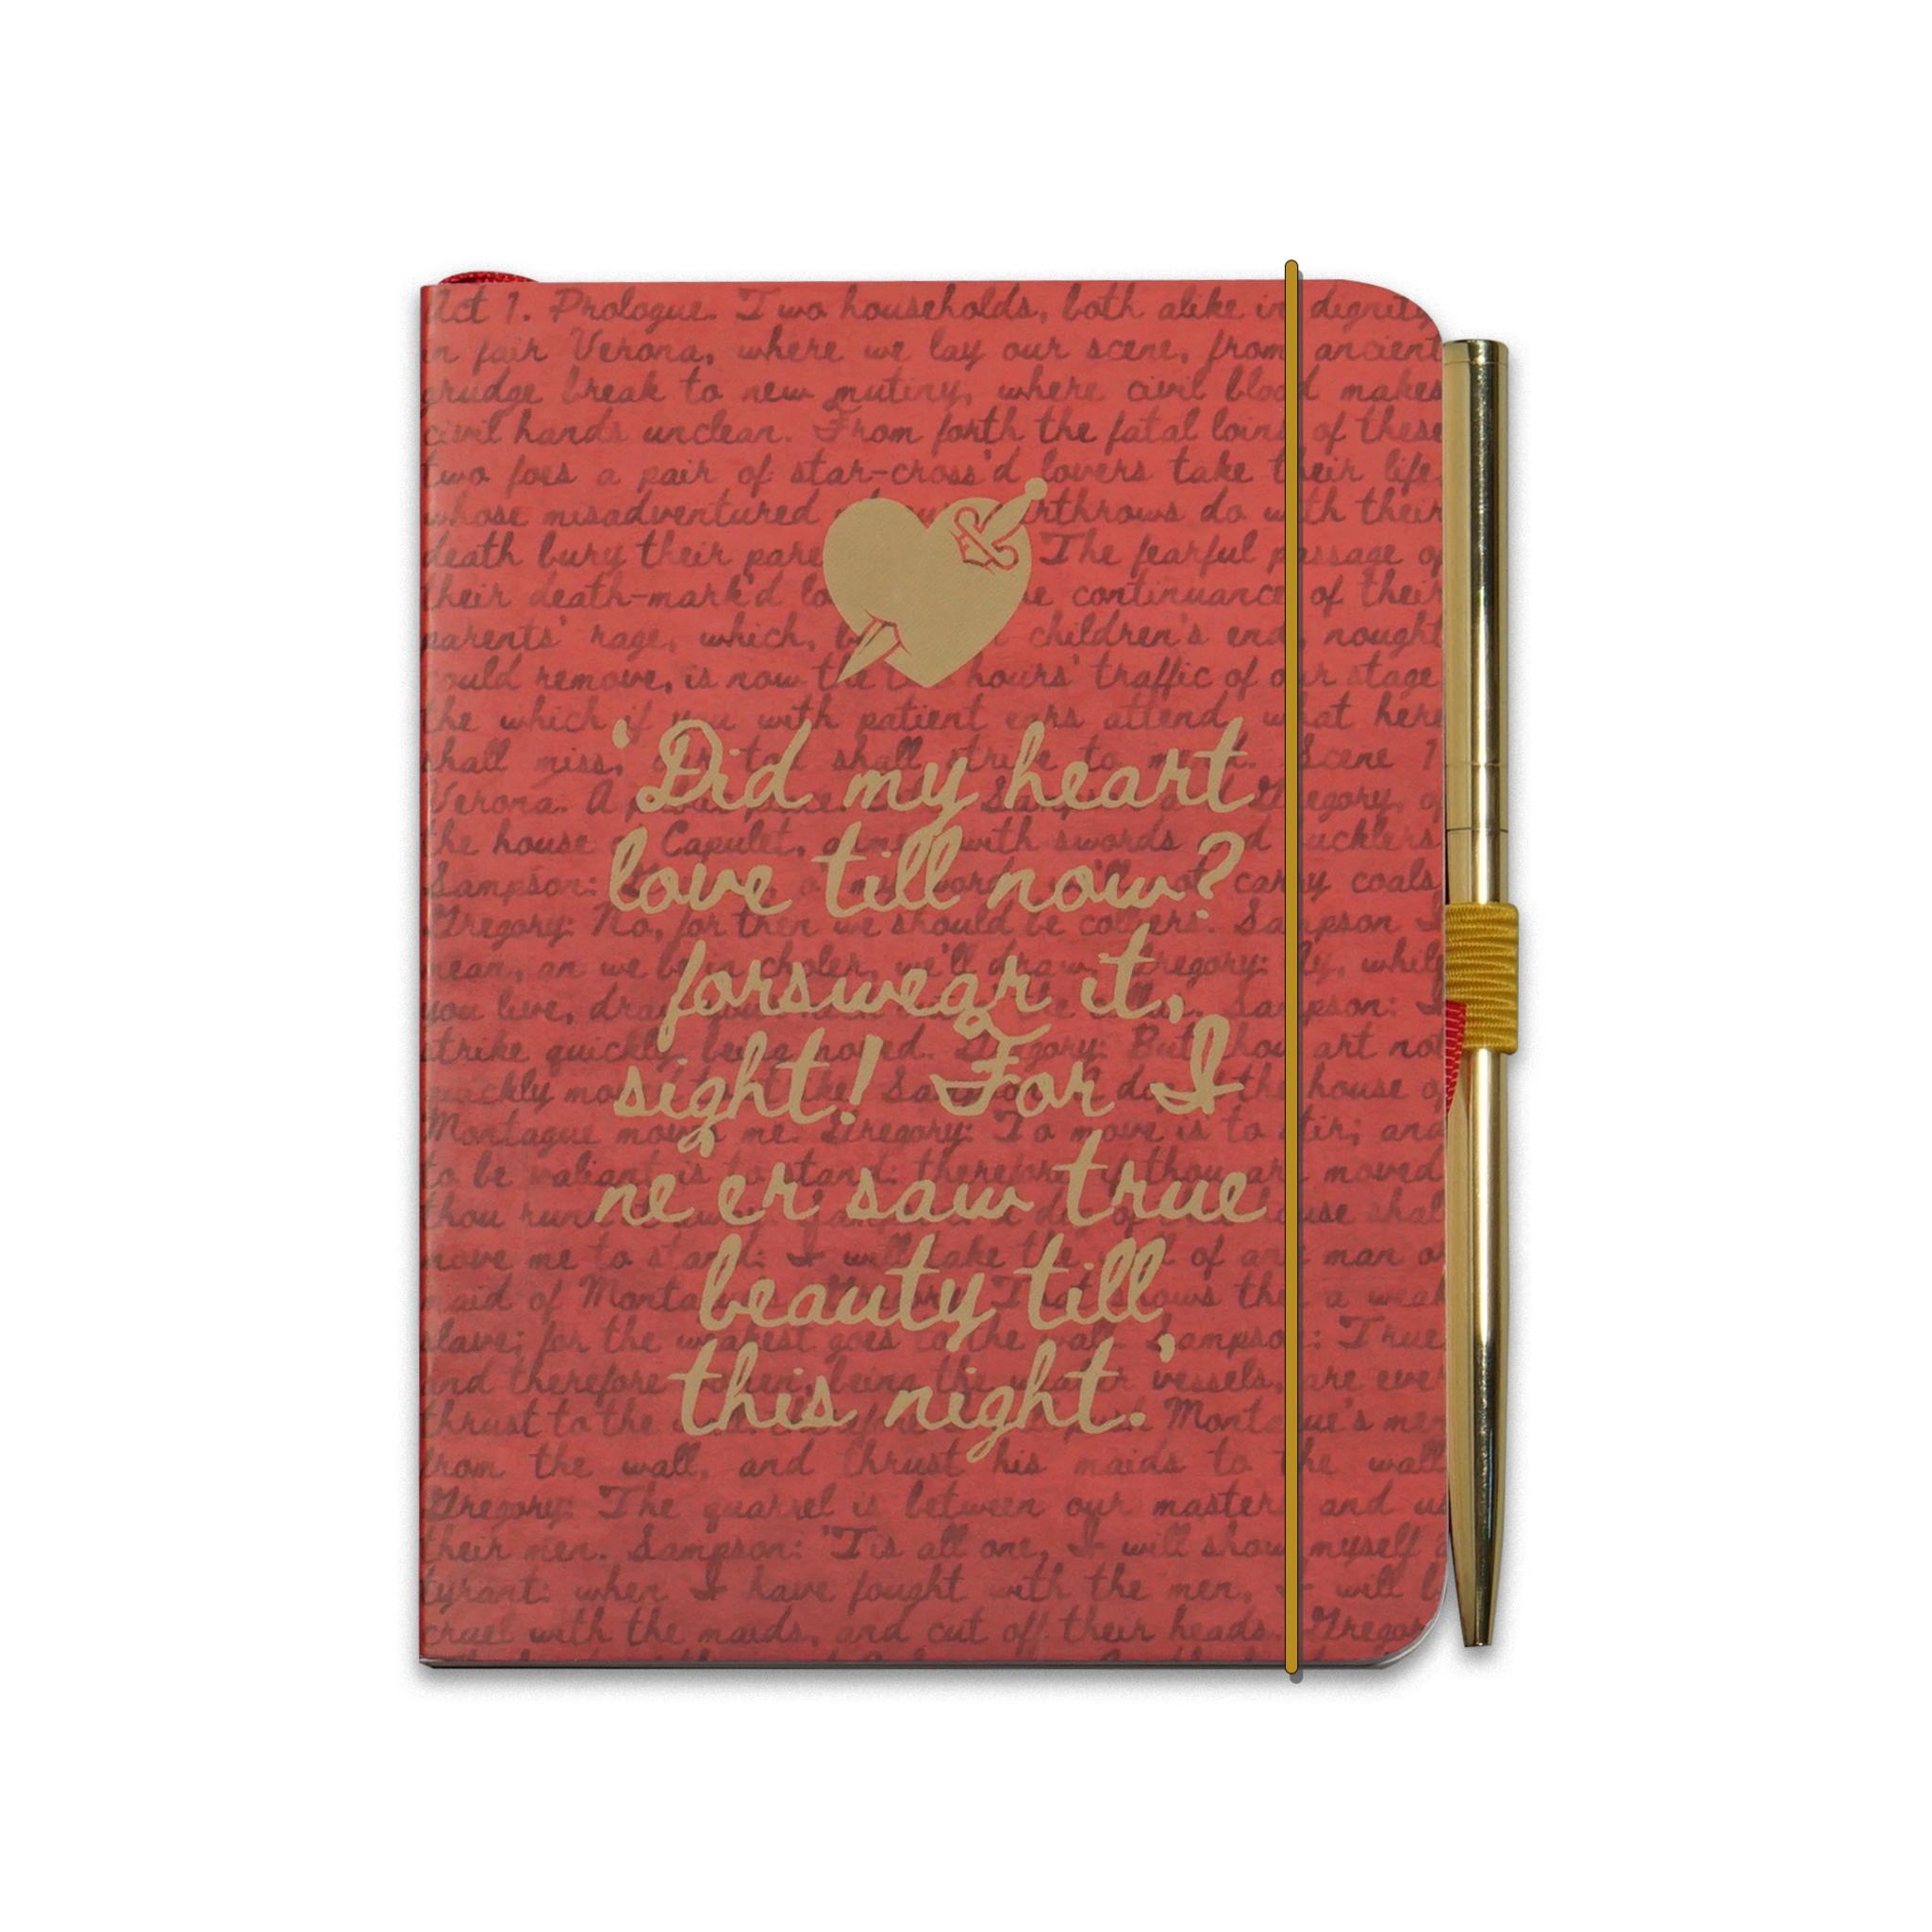 Act 1. Prologue. Two households, both alike in dignity
in fair Verona, where we lay our scene, from ancient
grudge break to new mutiny, where civil blood makes
civil hands unclean. From forth the fatal loins of these
two foes a pair of star-cross'd lovers take their life
whose misadventured do with their
death bury their The fearful passage of
their death-mark'd continuance of their
parents' rage, which, children's end, nought
could remove, is now the hours' traffic of our stage
the which if you with patient ears attend, what here
'Did my heart
love till now?
forswear it,
sight! For I
ne'er saw true
beauty till
this night.'
shall miss, our toil shall strive to mend. Scene 1
Verona. A Gregory, of
the house Capulet, with swords bucklers
Sampson: carry coals
Gregory: No, for then we should be colliers. Sampson I
mean, an we be in choler, we'll draw. Gregory: Ay, while
you live, Sampson: I
strike quickly, being moved. Gregory: But thou art not
quickly the house of
Montague moves me. Gregory: To move is to stir; and
to be valiant is to stand: therefore, if thou art moved
thou
move me to stand: I will take the of any man or
maid of shows thee a weak
slave; for the weakest goes to the wall. Sampson: True
and therefore women, being the weaker vessels, are ever
thrust to the Montague's men
from the wall, and thrust his maids to the wall
Gregory: The quarrel is between our masters and us
their men. Sampson: 'Tis all one, I will show myself a
tyrant: when I have fought with the men, I will be
cruel with the maids, and cut off their heads. Gregory